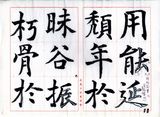 用能延
頹年於
昧谷振
朽骨於